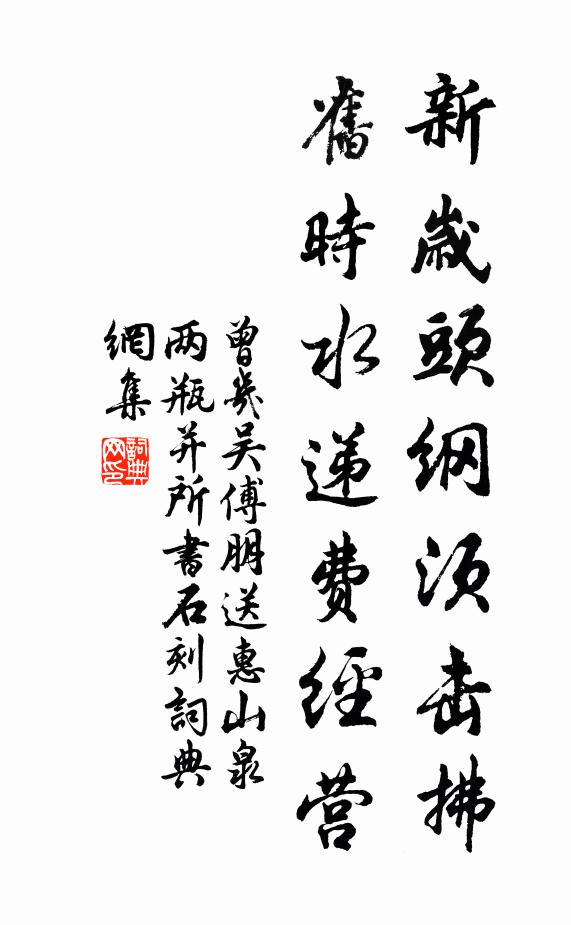 新歲頭綱須击拂
舊時水递费經营
曾幾吴傅朋送惠山泉
两瓶并所書石刻詞典
網集
詞典
网印